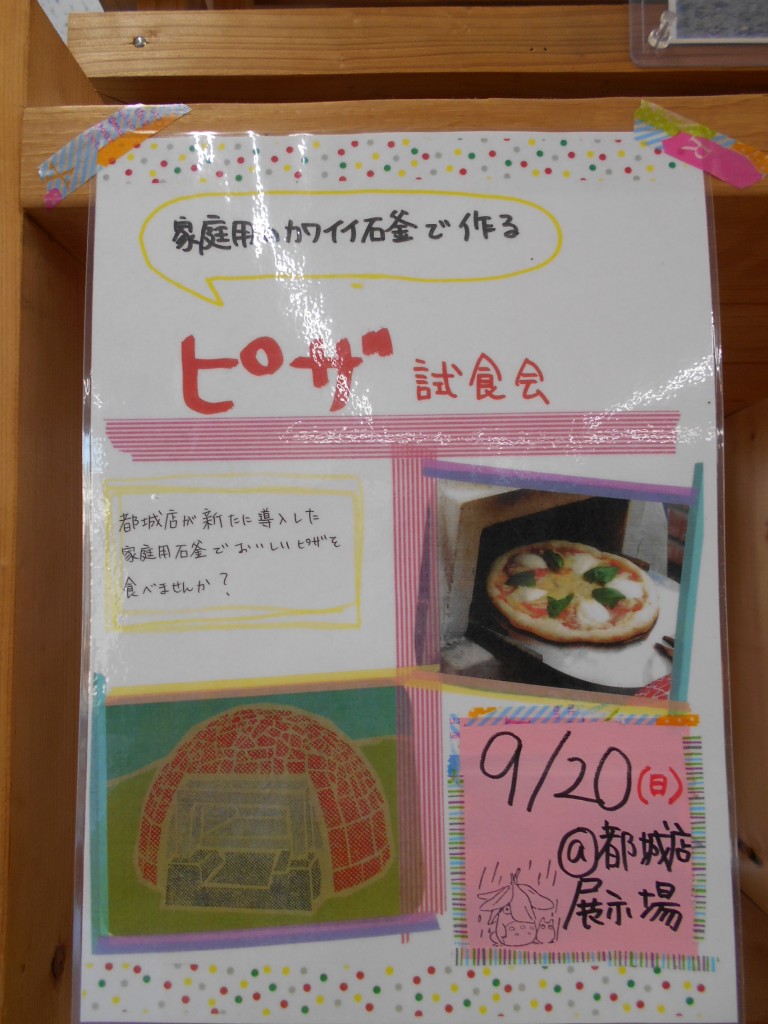 家庭用のカワイイ石釜で作る
ピザ 試食会
都城店が新たに導入した
家庭用石釜でおいしいピザを
食べませんか?
9/20(日)
@都城店
展示場